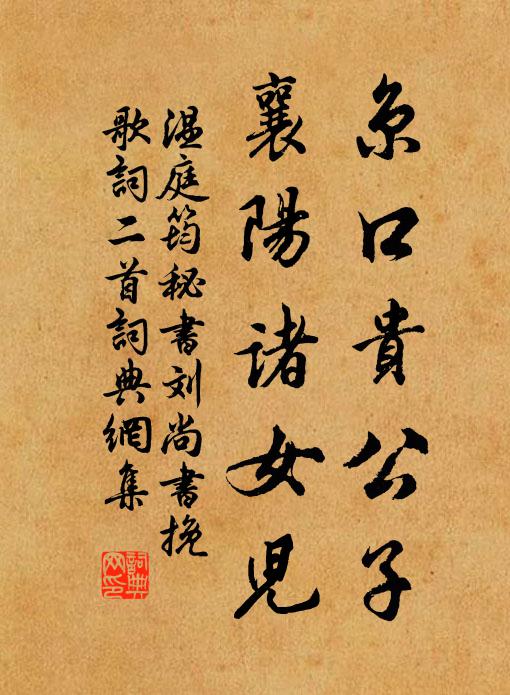 京口貴公子
襄陽諸女兒
温庭筠秘書刘尚書挽
歌詞二首詞典網集
詞典
网印